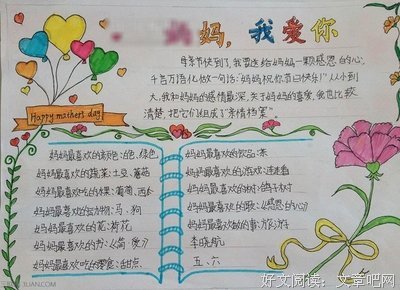 妈，我爱你
Happy mother's day!
母亲节快到了，我要送给妈妈一颗感恩的心，
千言万语化做一句话："妈妈祝你节日快乐!"从小到
大，我和妈妈的感情最深，关于妈妈的喜爱，我也比较
清楚，把它们组成了"亲情档案"
妈妈最喜欢的颜色：白色，绿色
妈妈最喜欢的蔬菜：土豆，蕃茄
妈妈最喜欢吃的水果：葡萄，西
妈妈最喜欢的动物：马，狗
妈妈最喜欢的花：荷花
妈妈最喜欢的
妈妈最喜欢吃的零食：甜点
妈妈最喜欢的饮品：茶
妈妈最喜欢的游戏：连连看
妈妈最喜欢的树：鸽子树
妈妈最喜欢的歌：《感恩的心》
妈妈最喜欢做的事：旅游
李晓航
五、六
好文阅读：文章吧网